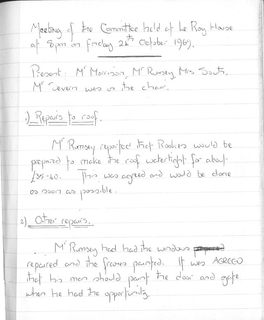 Meeting of the Committee held at Le Roy House
at 8pm on Friday 26th October 1967.
Present: Mr Morrison, Mr Rumsey, Mrs South.
Mr Severn was in the chair.
1) Repairs to roof.
Mr Rumsey reported that would be
prepared to make the roof watertight for about
£35-40. This was agreed and would be done
as soon as possible.
2) Other repairs.
Mr Rumsey had had the windows
repaired and the frames painted. It was AGREED
that his men should paint the door and gate
when he had the opportunity.